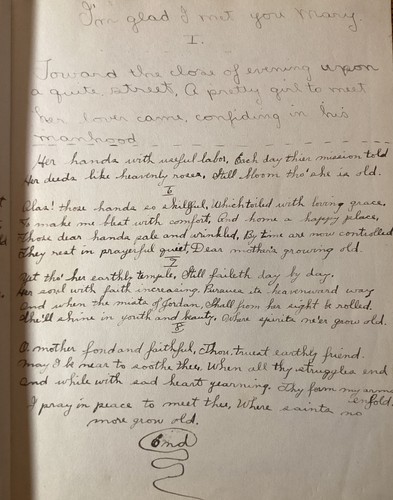 I'm glad I met you Mary.
I.
Toward the close of evening upon
a quite street, A pretty girl to meet
her lover came, confiding in his
manhood
Her hands with useful labor, Each day thier mission told
Her deeds like heavenly roses, Still bloom tho' she is old.
6
Alas! those hands so skillful, Which toiled with loving grace,
To make me blest with comfort, And home a happy place,
Those dear hands pale and wrinkled, By time are now controlled
They rest in prayerful quiet, Dear mother's growing old.
7
Yet tho' her earthly temple, Still faileth day by day.
Her soul with faith increasing. Pursues its heavenward way
And when the mists of Jordan, Shall from her sight be rolled.
She'll shine in youth and beauty, Where spirits ne'er grow old.
8
O, mother fond and faithful, Thou truest earthly friend.
May I be near to soothe thee, When all thy struggles end
And while with sad heart yearning. Thy form my arms
enfold.
I pray in peace to meet thee, Where saints no
more grow old.
End